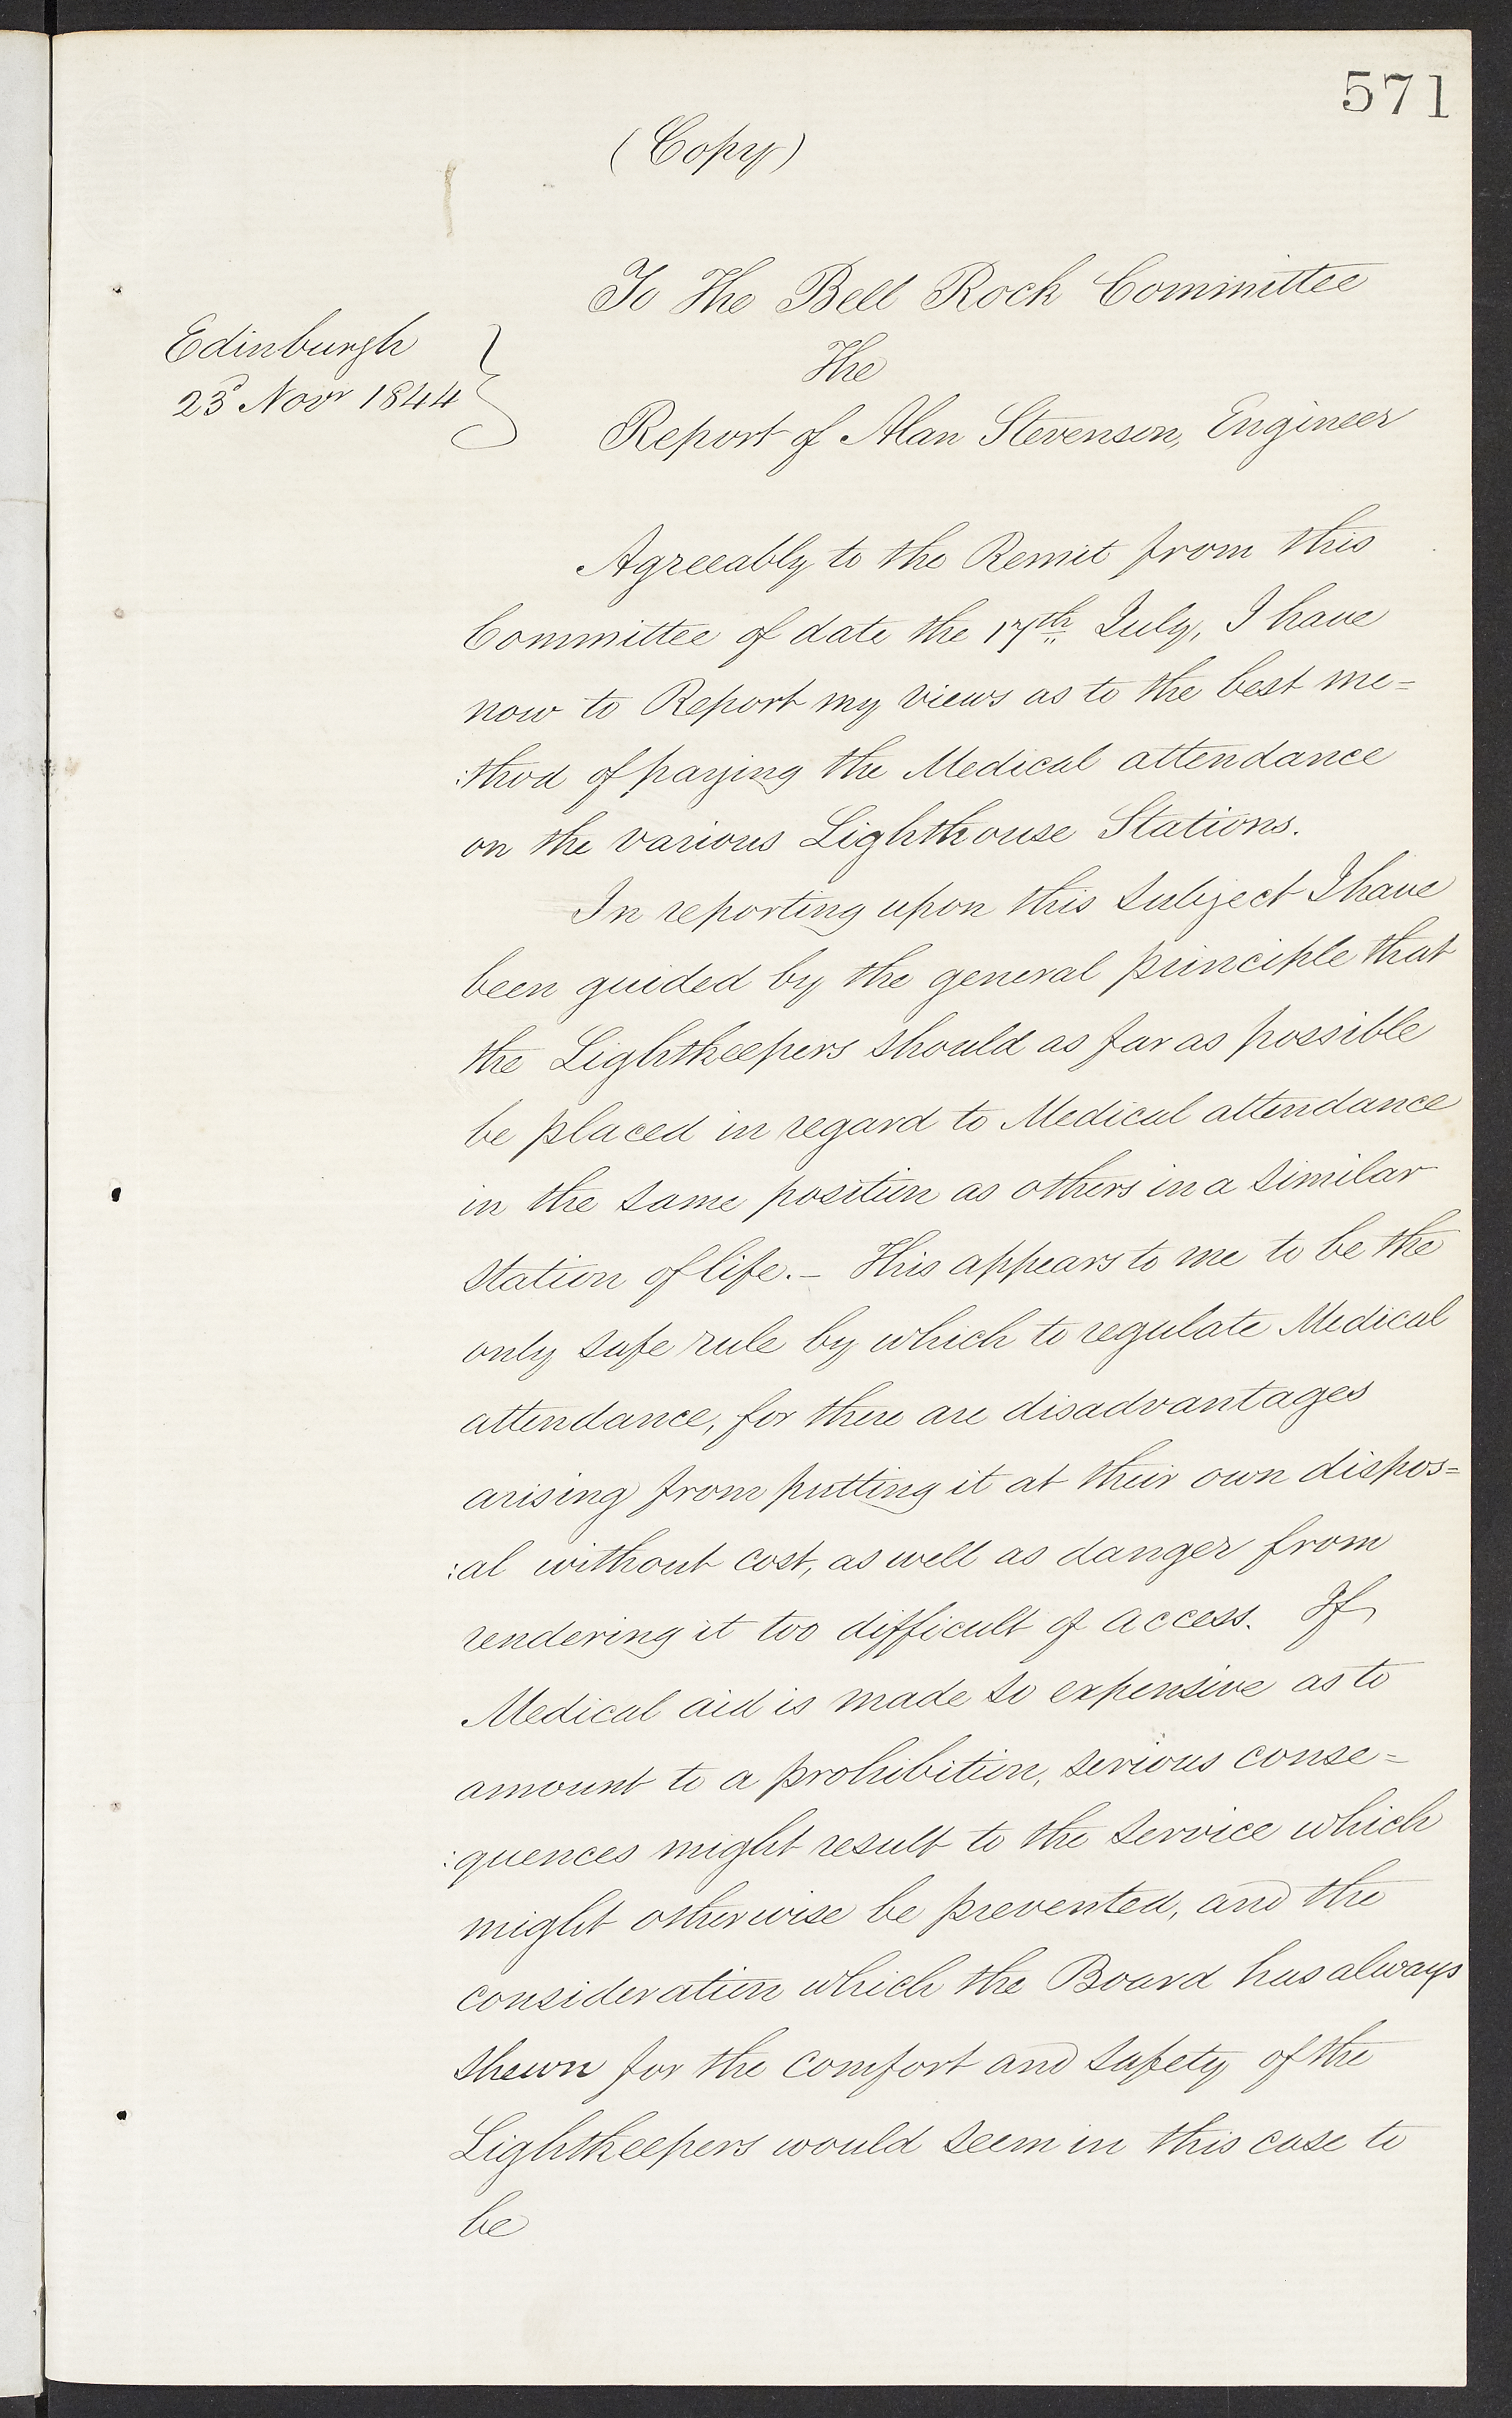 571
(Copy)
To The Bell Rock Committee
Edinburgh
23d Novr 1844
The
Report of Alan Stevenson, Engineer
Agreeably to the Remit from this
Committee of date the 17th July, I have
now to Report my views as to the best me=
:thod of paying the Medical attendance
on the various Lighthouse Stations.
In reporting upon this subject I have
been guided by the general principle that
the Lightkeepers should as far as possible
be placed in regard to Medical attendance
in the same position as others in a similar
station of life.– This appears to me to be the
only safe rule by which to regulate Medical
attendance, for there are disadvantages
arising from putting it at their own dispos=
:al without cost, as well as danger from
rendering it too difficult of access. If
Medical aid is made so expensive as to
amount to a prohibition, serious conse=
:quences might result to the service which
might otherwise be prevented, and the
consideration which the Board has always
shewn for the comfort and safety of the
Lightkeepers would seem in this case to
be